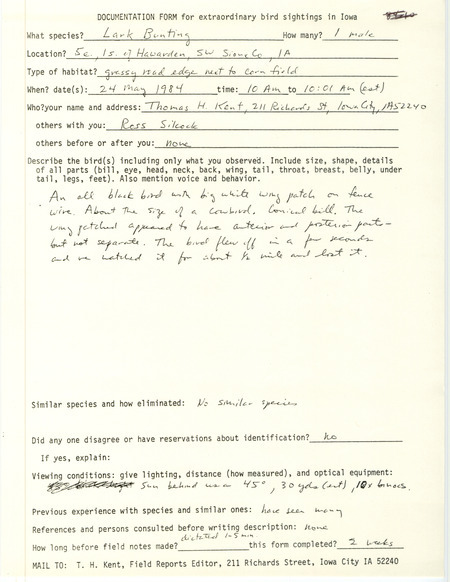 DOCUMENTATION FORM for extraordinary bird sightings in Iowa
What species? Lark Bunting How many? 1 male
Location? 5e., 1s. of Hawarden, SW Sioux Co, IA
Type of habitat? grassy road edge next to corn field
When? date(s): 24 May 1984 time: 10 AM to 10:01 AM (est)
Who?your name and address: Thomas H. Kent, 211 Richards St, Iowa City, IA 52240
others with you: Ross Silcock
others before or after you: none
Describe the bird(s) including only what you observed. Include size, shape, details
of all parts (bill, eye, head, neck, back, wing, tail, throat, breast, belly, under
tail, legs, feet). Also mention voice and behavior.
An all black bird with big white wing patch on fence
wire. About the size of a cowbird. Conical bill. The
wing patched appeared to have anterior and posterior parts -
but not separate. The bird flew off in a few seconds
and we watched it for about ½ mile and lost it.
Similar species and how eliminated: No similar species
Did any one disagree or have reservations about identification? No
If yes, explain:
Viewing conditions: give lighting, distance (how measured), and optical equipment:
Sun behind us 45°, 30 yds (est), 10x binocs.
Previous experience with species and similar ones: have seen many
References and persons consulted before writing description: none
dictated 1-5 min
How long before field notes made? this form completed? 2 weeks
MAIL TO: T. H. Kent, Field Reports Editor, 211 Richards Street, Iowa City IA 52240